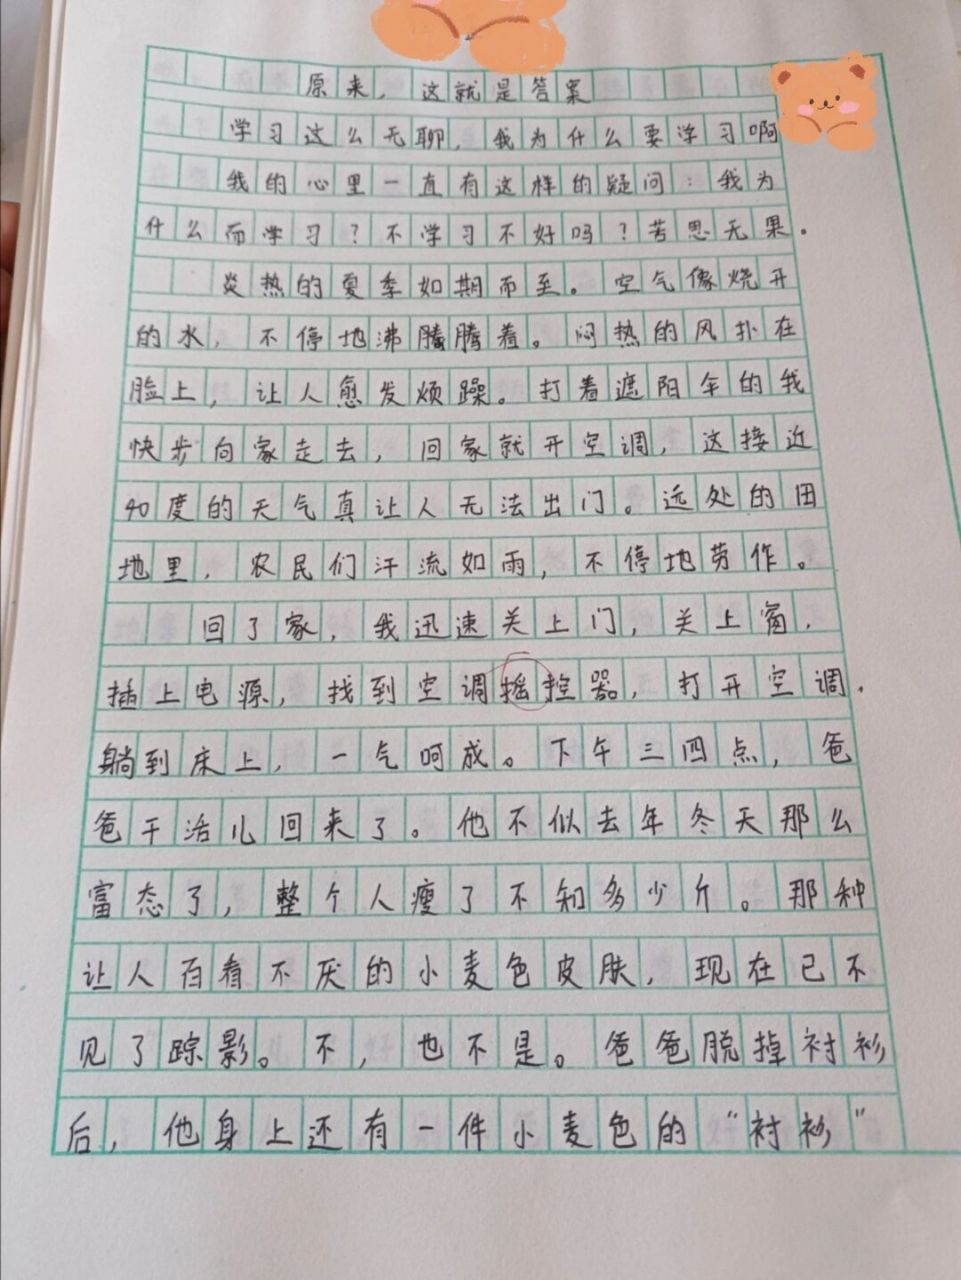 原来，这就是答案
学习这么无聊，我为什么要学习啊
我的心里一直有这样的疑问：我为
什么而学习？不学习不好吗？苦思无果。
炎热的夏季如期而至。空气像烧开
的水，不停地沸腾腾着。闷热的风扑在
脸上，让人愈发烦躁。打着遮阳伞的我
快步向家走去，回家就开空调，这接近
40度的天气真让人无法出门。远处的田
地里，农民们汗流如雨，不停地劳作。
回了家，我迅速关上门，关上窗，
插上电源，找到空调摇控器，打开空调，
躺到床上，一气呵成。下午三四点，爸
爸干活儿回来了。他不似去年冬天那么
富态了，整个人瘦了不知多少斤。那种
让人百看不厌的小麦色皮肤，现在已不
见了踪影。不，也不是。爸爸脱掉衬衫
后，他身上还有一件小麦色的“衬衫”